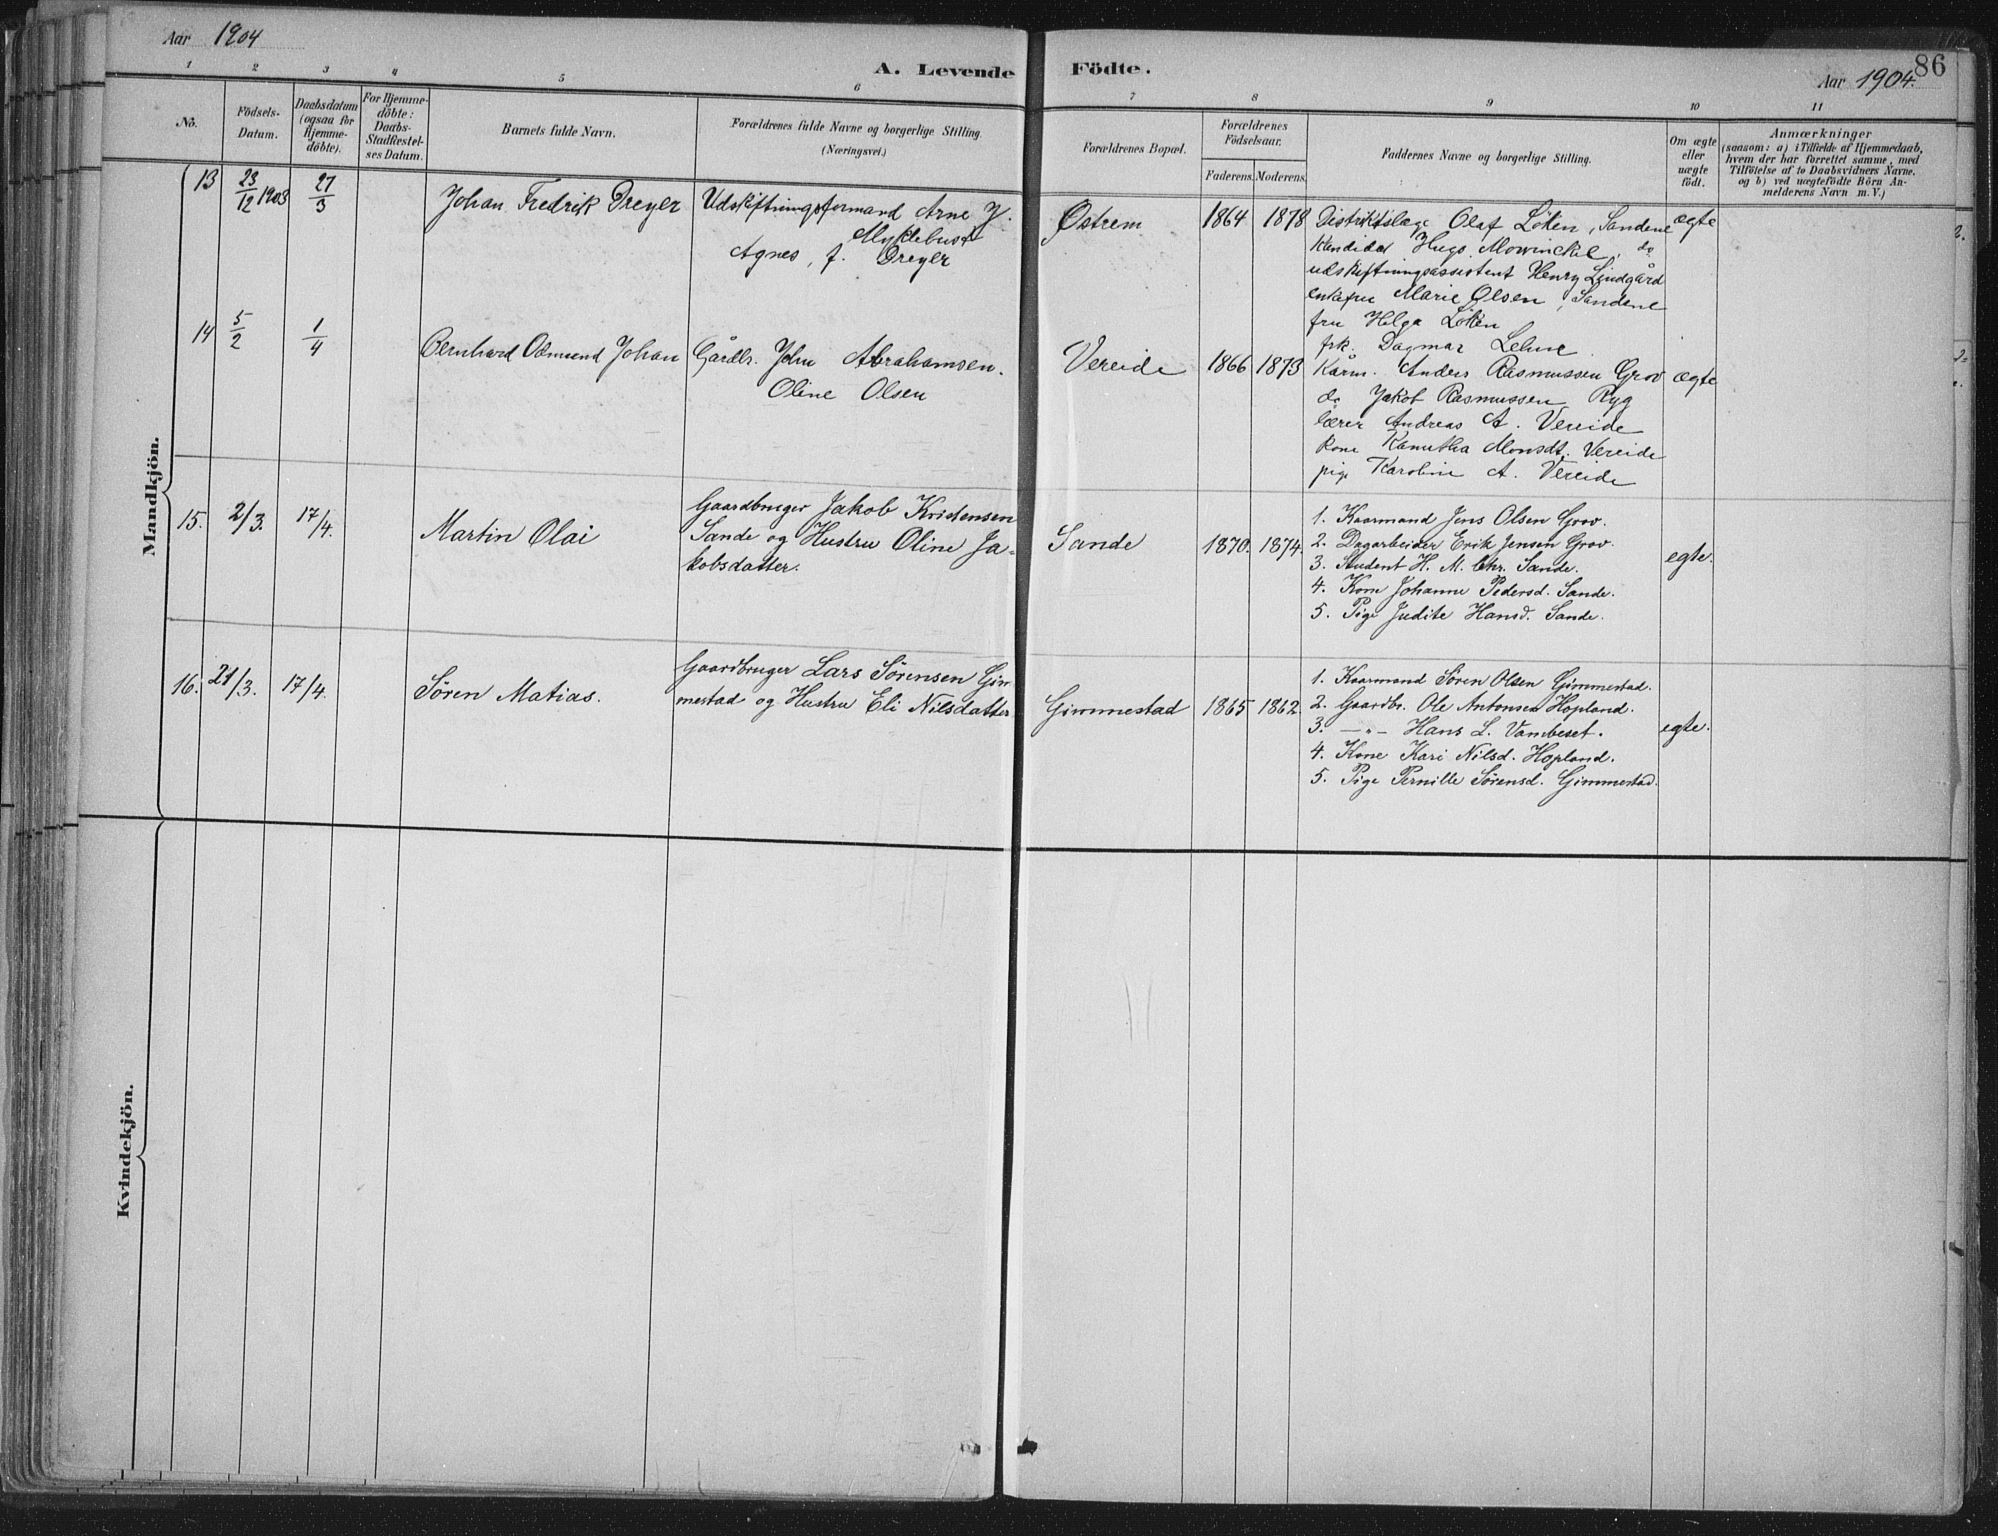 Aar 1904
A. Levende Födte.
Aar 1904.
86
1 2 3 4 5 6 7 8 9 10 11
No.
Födsels-
Datum.
Daabsdatum
(ogsaa for
Hjemme-
döbte).
For Hjemme-
döbte:
Daabs-
Stadfæstel-
ses Datum.
Barnets fulde Navn.
Forældrenes fulde Navne og borgerlige Stilling.
(Næringsvei.)
Forældrenes Bopæl.
Forældrenes
Födselsaar.
Faderens. Moderens.
Faddernes Navne og borgerlige Stilling.
Om ægte
eller
uægte
födt.
Anmærkninger
(saasom: a) i Tilfælde af Hjemmedaab,
hvem der har forrettet samme, med
Tilföielse af to Daabsvidners Navne.
og b) ved uægtefödte Börn An-
melderens Navn m. V.)
Mandkjön.
13 23/12 1903 27/3 Johan Fredrik Dreyer
Udskiftningsformand Arne J.
Myklebust
Agnes, f. Dreyer
Østrem 1864 1878
Distriktslæge Olaf Löken, Sandene
Kandidat Hugo Mowinckel, do
udskiftningsassistent Henry Lindgård
enkefru Marie Olsen, Sandene
fru Helga Löken
frk. Dagmar Lehne
ægte
14 5/2 1/4 Bernhard Odmund Johan
Gårdbr. John Abrahamsen.
Oline Olsen
Vereide 1866 1873
Kårm. Anders Rasmussen Grov
do Jakob Rasmussen Ryg
lærer Andreas A. Vereide
kone Kanutha Monsdt. Vereide
pige Karoline A. Vereide
ægte
15. 2/3. 17/4. Martin Olai
Gaardbruger Jakob Kristensen
Sande og Hustru Oline Ja-
kobsdatter.
Sande 1870. 1874.
1. Kaarmand Jens Olsen Grov.
2. Dagarbeider Erik Jensen Grov.
3. Student H. M. Chr. Sande.
4. Kone Johanne Pedersd. Sande.
5. Pige Judite Hansd. Sande.
egte.
16. 21/3. 17/4. Sören Matias.
Gaardbruger Lars Sörensen Gim-
mestad og Hustru Eli Nilsdatter
Gimmestad 1865 1862
1. Kaarmand Sören Olsen Gimmestad.
2. Gaardbr. Ole Antonsen Hopland.
3. —"— Hans L. Vambeset.
4. Kone Kari Nilsd. Hopland.
5. Pige Pernille Sörensd. Gimmestad.
egte.
Kvindekjön.